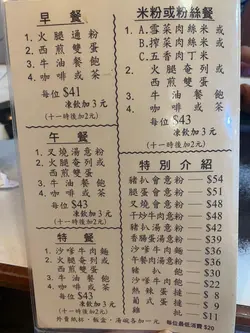 早餐
1. 火腿通粉
2. 西煎雙蛋
3. 牛油餐飽
4. 咖啡或茶
每位$41
凍飲加3元
(十一時後加2元)
午餐
1. 叉燒湯意粉
2. 火腿奄列或
西煎雙蛋
3. 牛油餐飽
4. 咖啡或茶
每位$43
凍飲加3元
(十一時後加2元)
特餐
1. 沙嗲牛肉麵
2. 火腿奄列或
西煎雙蛋
3. 牛油餐飽
4. 咖啡或茶
每位$43
凍飲加3元
(十一時後加2元)
米粉或粉絲餐
1. A.雪菜肉絲米或
B.搾菜肉絲米或
C.五香肉丁米
2. 火腿奄列或
西煎雙蛋
3. 牛油餐飽
4. 咖啡或茶
每位$43
凍飲加3元
(十一時後加2元)
特別介紹
豬扒會意粉 — $54
腿蛋會意粉 — $51
叉燒會意粉 — $48
干炒牛肉意粉 — $48
豬扒湯意粉 — $42
香腸蛋湯意粉 — $39
沙嗲牛肉麵 — $36
午餐肉湯意粉 — $36
豬扒飽 — $30
沙嗲牛肉飽 — $22
熱辣蛋撻 — $9
葡式蛋撻 — $9
雞批 — $11
外賣紙杯,飯盒,湯碗各加一元
每位最低消費 $20